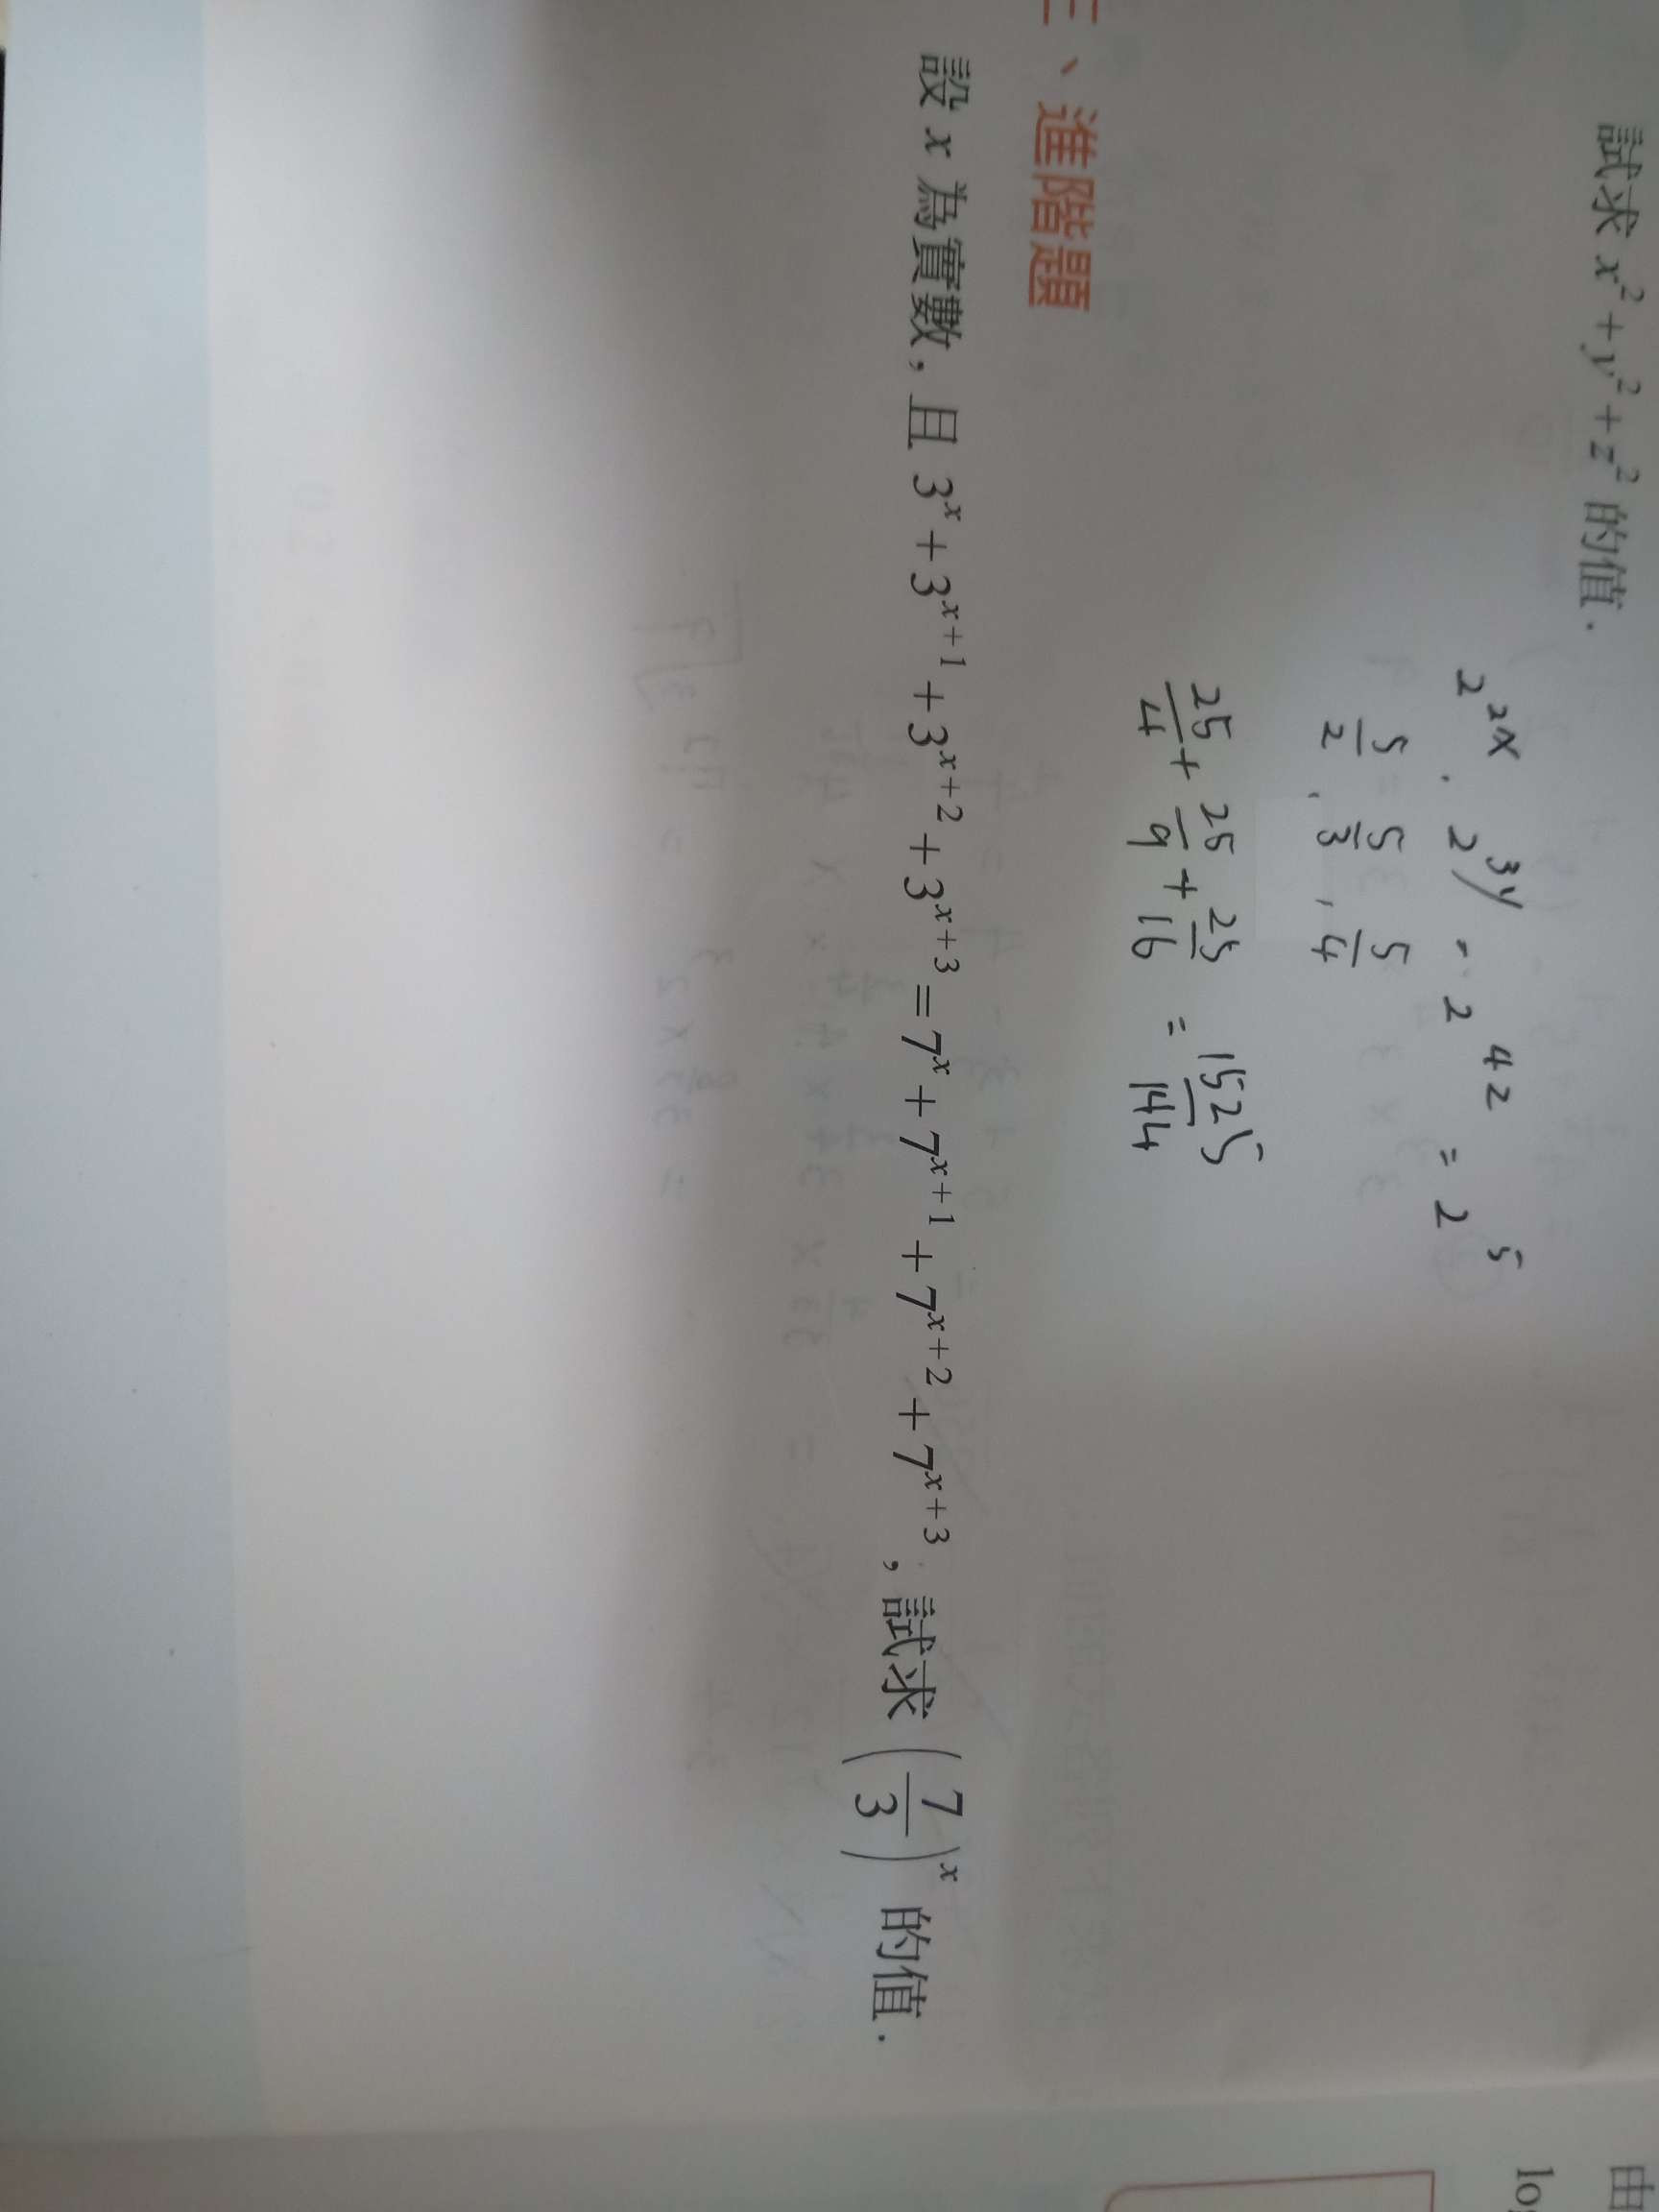 試求 x²+y²+z² 的值.
2^{2x} . 2^{3y} - 2^{4z} = 2^5
5/2 , 5/3 , 5/4
25/4 + 25/9 + 25/16 = 1525/144
三、進階題
設 x 為實數, 且 3^x + 3^{x+1} + 3^{x+2} + 3^{x+3} = 7^x + 7^{x+1} + 7^{x+2} + 7^{x+3}, 試求 (7/3)^x 的值.
由